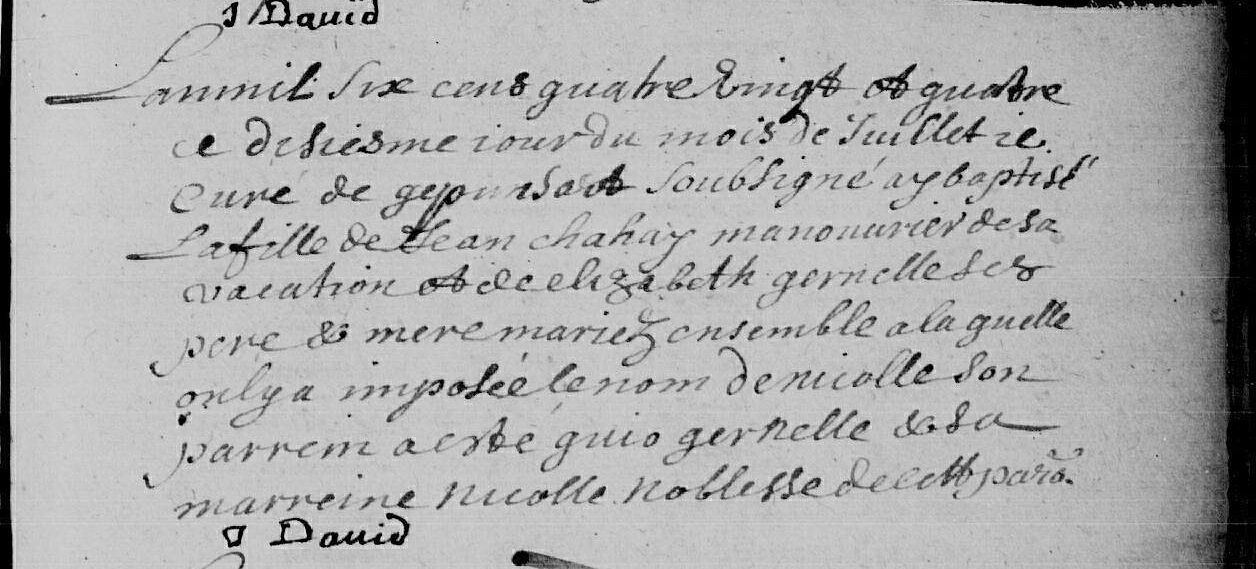 J David
Lan mil six cens quatre vingt et quatre
ce disiesme iour du mois de Juillet ie
Curé de gespunsart soubsigné ay baptisé
La fille de Jean chahay manouurier de sa
vacation et de elizabeth gernelle ses
pere & mere mariez ensemble a laquelle
on ly a imposée le nom de nicolle son
parrein a esté guio gernelle & sa
marreine Nicolle Noblesse de cett paro.
J David